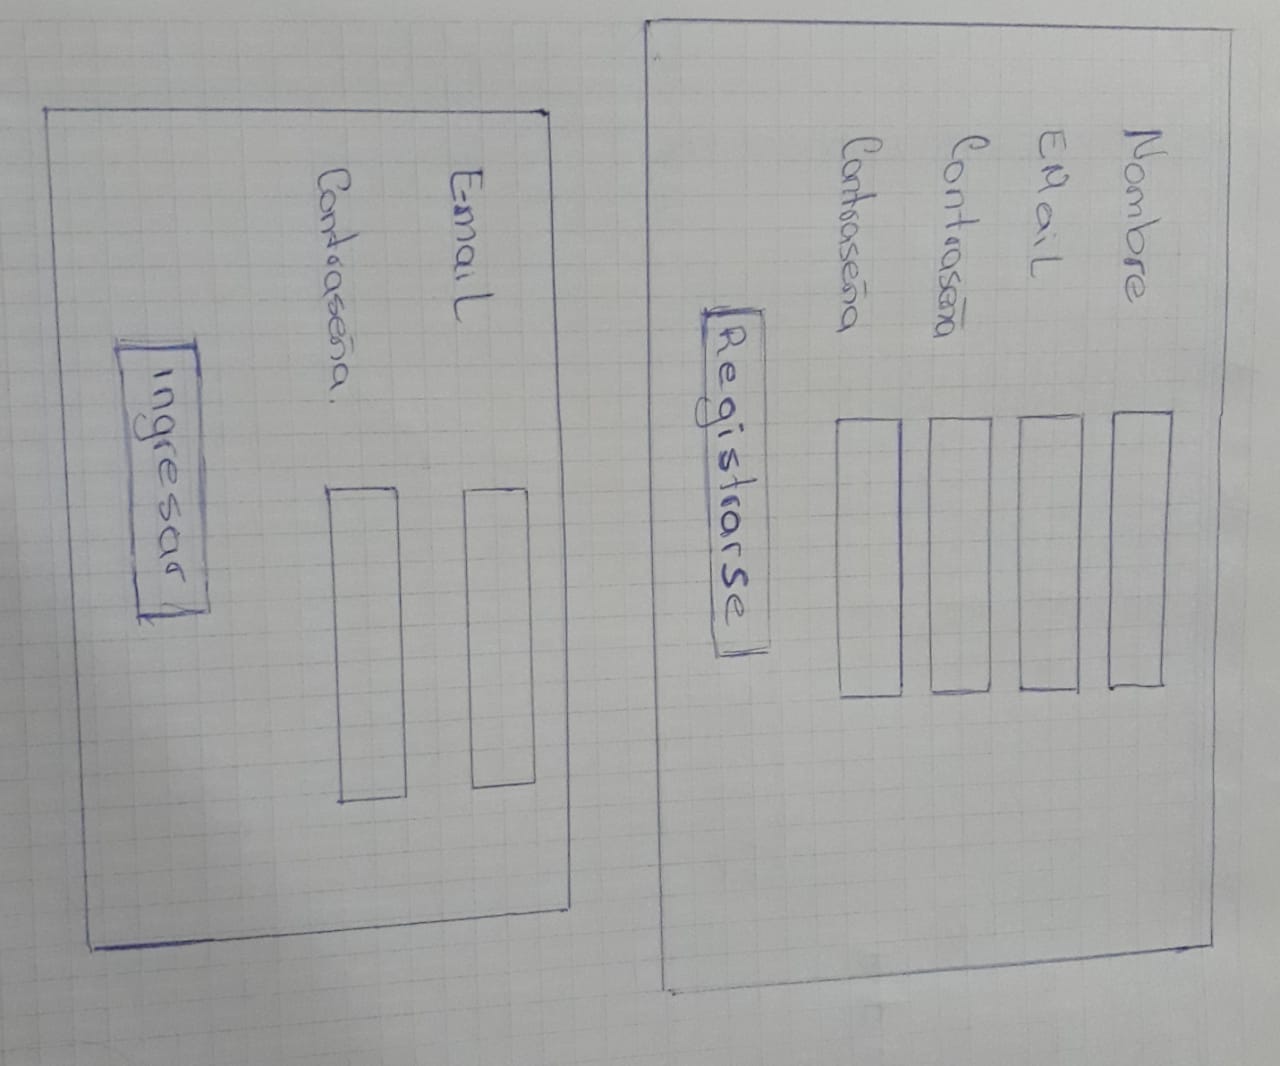 Nombre
EMail
Contraseña
Contraseña
Registrarse
E-mail
Contraseña.
ingresar